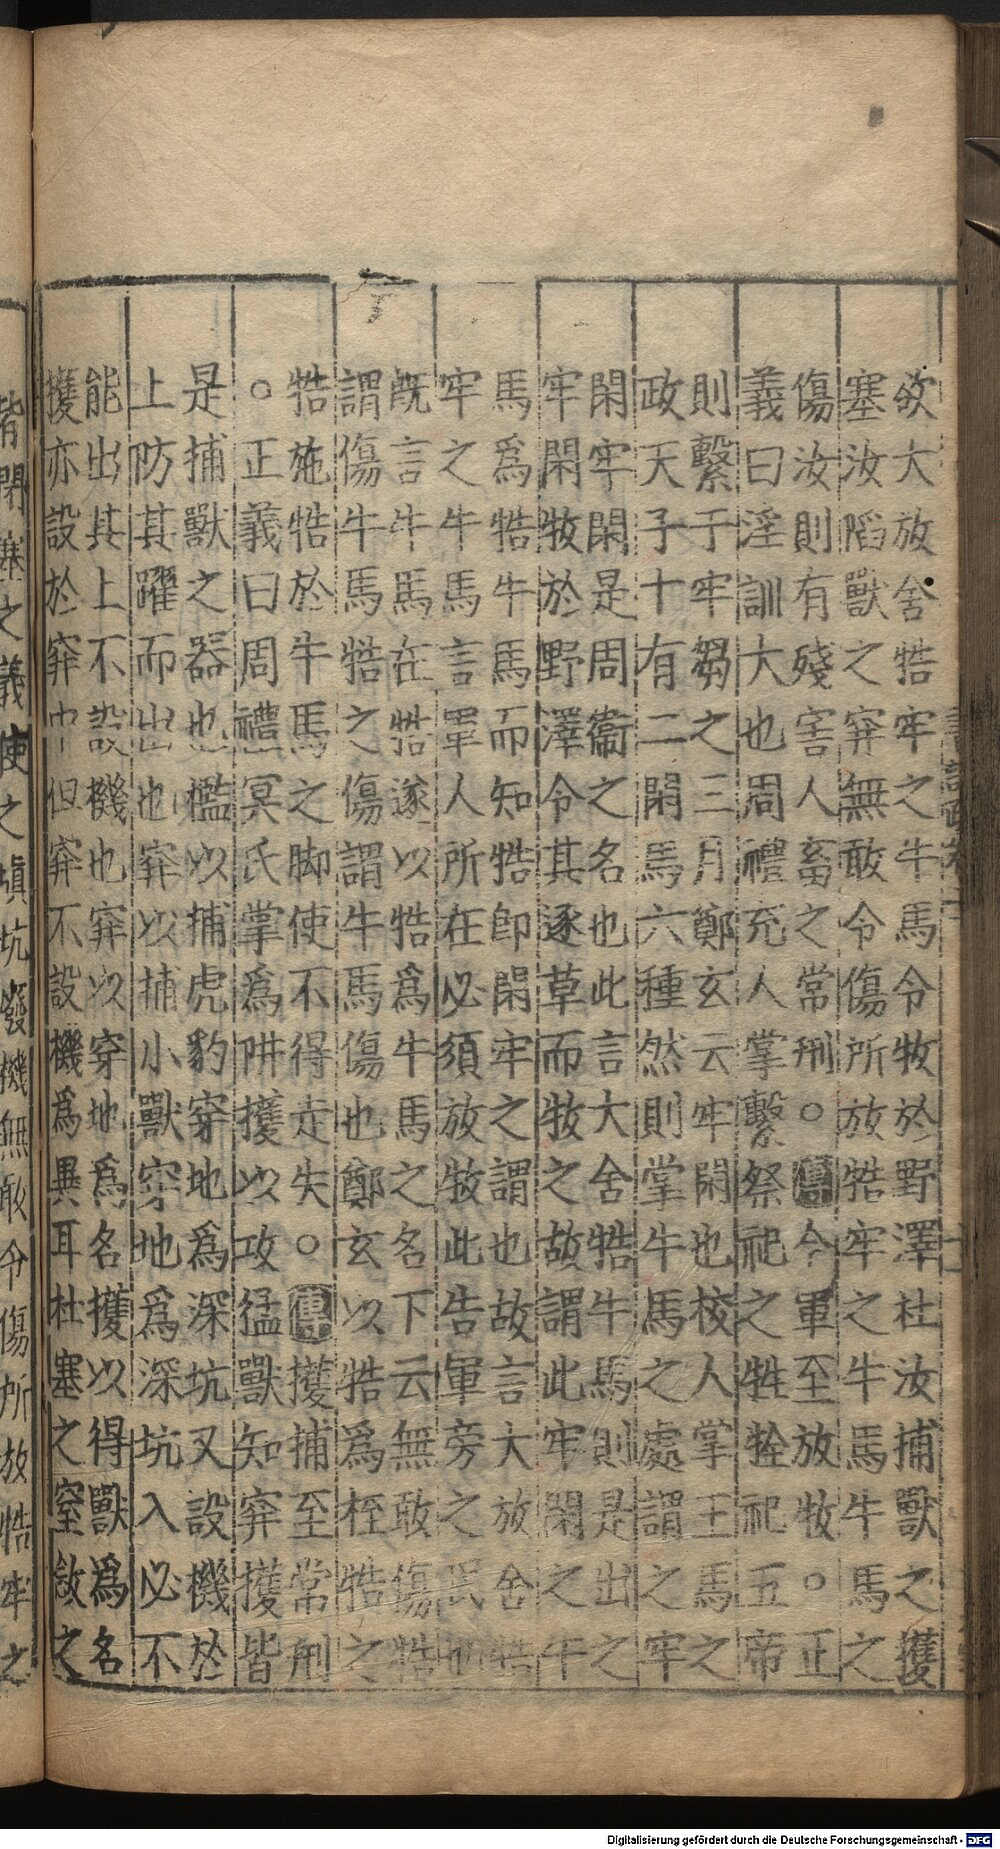 欲大放舍牿牢之牛馬令牧於野澤杜汝捕獸之擭
塞汝䧟獸之穽無敢令傷所放牿牢之牛馬牛馬之
傷汝則有殘害人畜之常刑○傳今軍至放牧○正
義曰淫訓大也周禮充人掌繫祭祀之牲牷祀五帝
則繫于牢芻之三月鄭玄云牢閑也校人掌王馬之
政天子十有二閑馬六種然則掌牛馬之處謂之牢
閑牢閑是周衞之名也此言大舍牿牛馬則是出之
牢閑牧於野澤令其逐草而牧之故謂此牢閑之牛
馬爲牿牛馬而知牿卽閑牢之謂也故言大放舍牿
牢之牛馬言軍人所在必須放牧此告軍旁之民也
旣言牛馬在牿遂以牿爲牛馬之名下云無敢傷牿
謂傷牛馬牿之傷謂牛馬傷也鄭玄以牿爲桎牿之
牿施牿於牛馬之脚使不得走失○傳擭捕至常刑
○正義曰周禮冥氏掌爲阱擭以攻猛獸知穽擭皆
是捕獸之器也檻以捕虎豹穿地爲深坑又設機於
上防其躍而出也穽以捕小獸穿地爲深坑入必不
能出其上不設機也穽以穿地爲名擭以得獸爲名
擭亦設於穽中但穽不設機爲異耳杜塞之窒敜之
皆閉塞之義使之塡坑廢機無敢令傷所放牿牢之
Digitalisierung gefördert durch die Deutsche Forschungsgemeinschaft - DFG